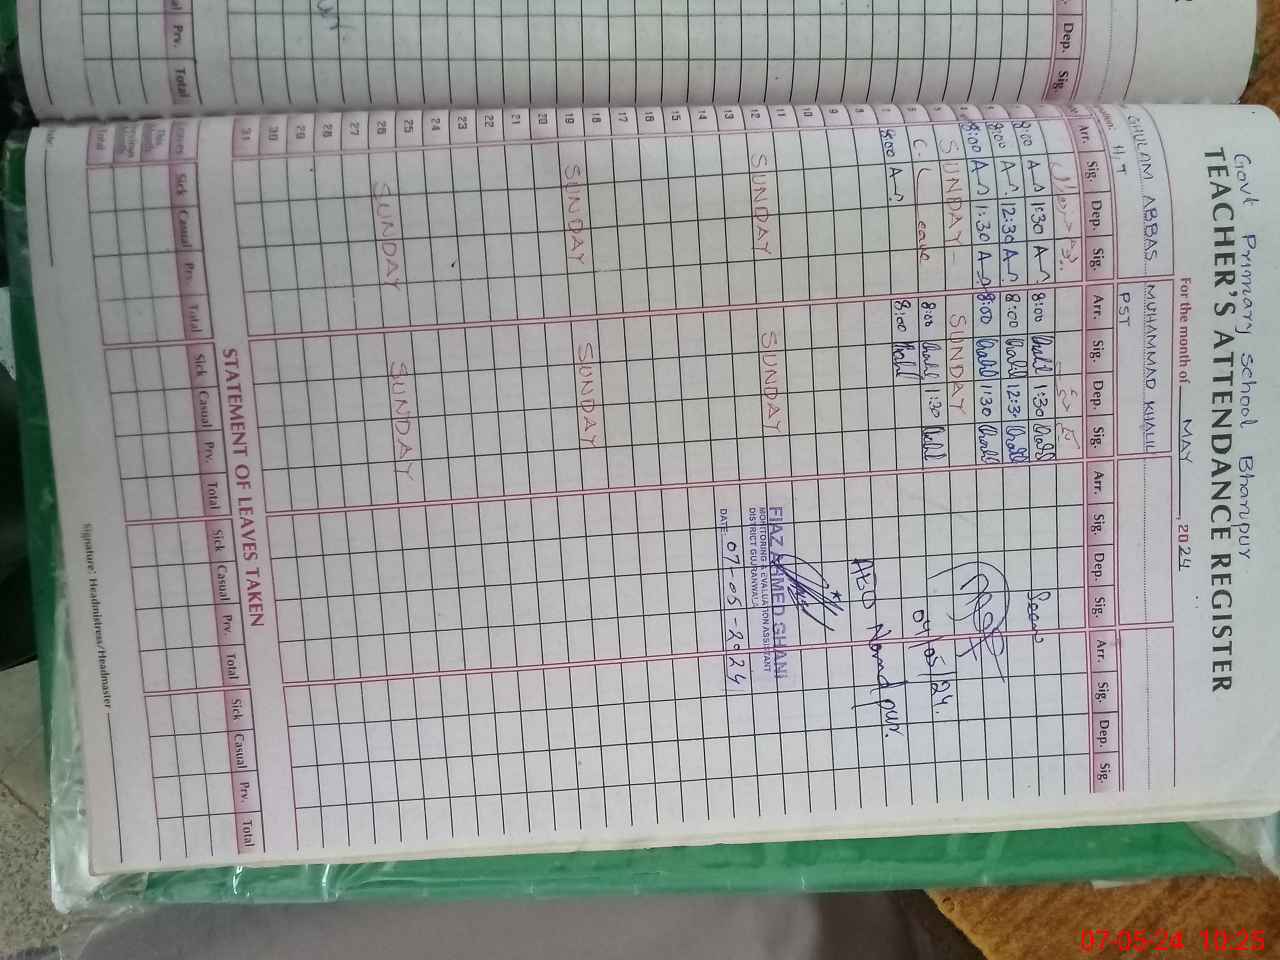 Govt Primary School Bhanpur
TEACHER'S ATTENDANCE REGISTER
For the month of MAY, 2024
GHULAM ABBAS MUHAMMAD KHALIL
H,T PST
Arr. Sig. Dep. Sig. Arr. Sig. Dep. Sig. Arr. Sig. Dep. Sig. Arr. Sig. Dep. Sig.
8:00 1:30 8:00 1:30
8:00 12:30 8:00 12:3
8:00 1:30 8:00 1:30
SUNDAY SUNDAY
C. Leave 8:00 1:30
7 8:00 8:00
Seen
04/05/24.
8
9
10
11
12 SUNDAY SUNDAY
FIAZ AHMED GHANI
MONITORING & EVALUATION ASSISTANT
DISTRICT GUJRANWALA
DATE: 07-05-2024
13
14
15
16
17
18
19 SUNDAY SUNDAY
20
21
22
23
24
25
26 SUNDAY SUNDAY
27
28
29
30
31
STATEMENT OF LEAVES TAKEN
Leaves Sick Casual Prv. Total Sick Casual Prv. Total Sick Casual Prv. Total Sick Casual Prv. Total
This Month
Previous Month
Total
Signature: Headmistress/Headmaster
Prv. Total
Dep. Sig.
07-05-24 10:25